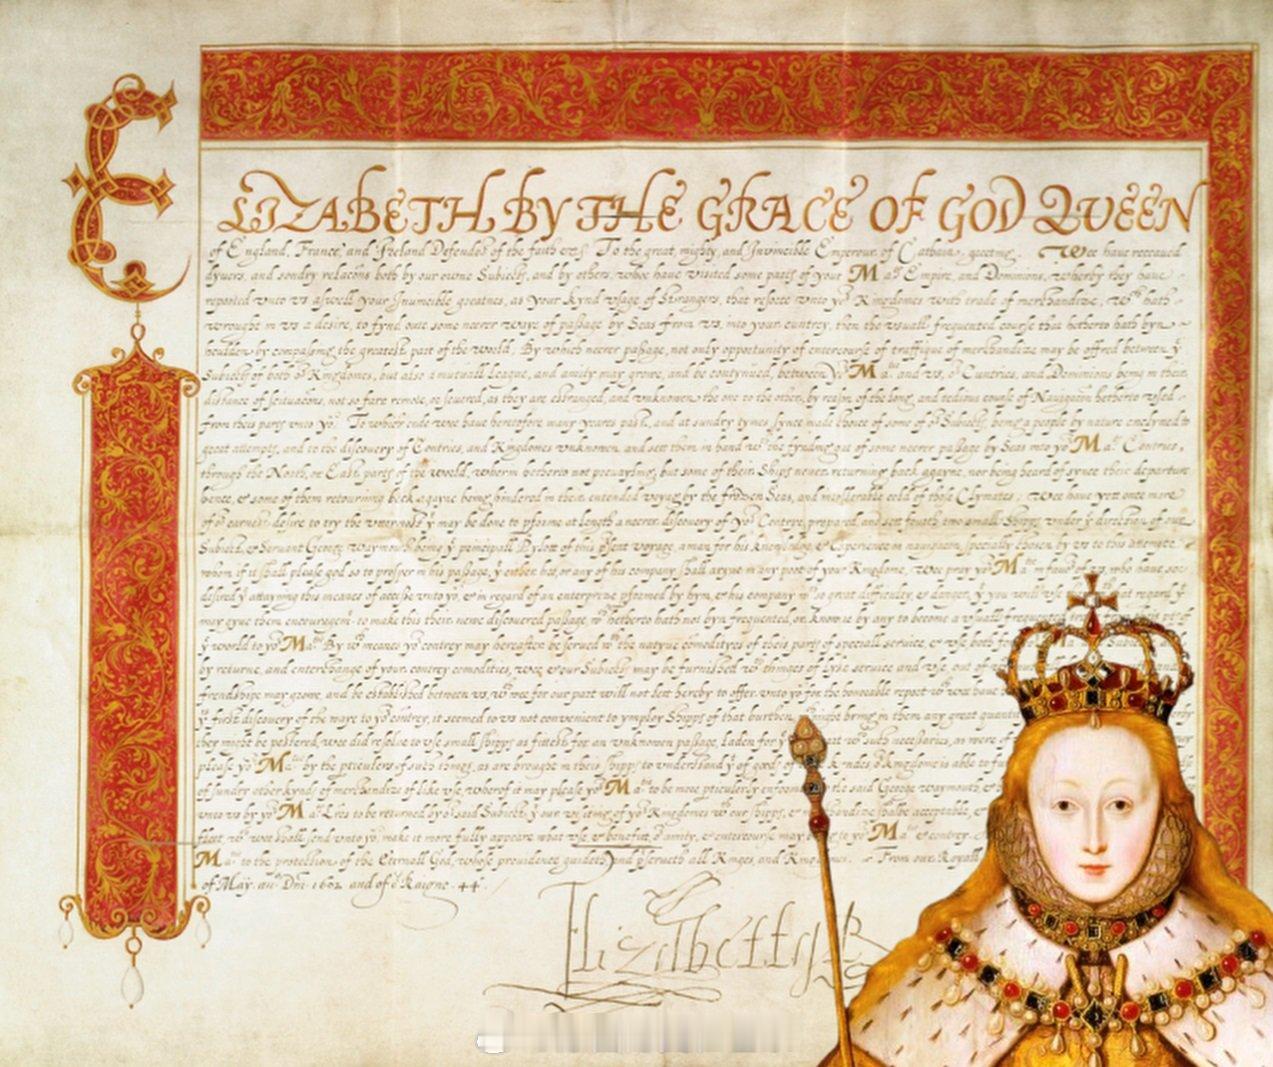 ELIZABETH BY THE GRACE OF GOD QUEEN
of England, France, and Ireland Defendor of the faith &c. To the great, mighty, and Invincible Emperour of Cathaia, greeting. Wee have receaved
dyvers, and sondry relacons both by our owne Subiects, and by others, whoe have visited some partes of your Maties Empire, and Dominions, wherby they have
reported vnto vs aswell your Invincible greatnes, as your kynd vsage of Strangers, that resorte vnto yor Kingdomes with trade of merchandize, wch hath
wrought in vs a desire, to fynd oute some neerer waye of passage by Seas from vs, into your cuntrey, then the vsuall frequented course that hetherto hath byn
houlden by compassing the greatest part of the world. By which neerer passage, not only opportunity of entercourse of traffique of merchandize may be offred between ye
Subiects of both or Kingdomes, but also a mutuall league, and amity may growe, and be contynued, between yor Matie and vs, or Cuntries, and Dominions being in their
distance of scituacons, not so farr remote, or severed, as they are estranged, and vnknowen the one to the other, by reason of the long, and tedious course of Navigacon hetherto vsed
from theis parts vnto yor. To which ende wee have heretofore many yeares past, and at sundry tymes synce made choice of some of or Subiects, being a people by nature enclyned to
great attempts, and to the discovery of Contries, and Kingdomes vnknowen and sett them in hand wth the fynding out of some neerer passage by Seas into yor Maties Contries,
through the North, or East parts of the world, wherin hetherto not prevayling, but some of their Ships never returning back agayne, nor being heard of synce their departure
hence, & some of them retourning back agayne being hindered in their entended voyage by the frozen Seas, and intollerable cold of those Clymates: wee have yett once more
of or earnest desire to try the vttermost yt may be done to pforme at length a neerer discovery of yor Contrye, prepared and sett fourth two small Shipps vnder ye direction of our
Subiect, & Servant George Waymouth being ye principall Pylott of this pesent voyage, a man for his knowledge & Experience in navigacon, specially chosen by vs to this attempte
whom if it shall please god so to prosper in his passage, yt either hee, or any of his company shall aryve in any port of your Kingdome, wee pray yor Matie in favor of vs, who have soe
desired ye attayning this meanes of accesse vnto yor, & in regard of an enterprize pformed by hym, & his company wth so great difficulty, & danger, yt you will vse at regard yt
may gyve them encouragemt to make this their newe discovered passage, wch hetherto hath not byn frequented, or knowne by any to become a vsuall
ye world to yor Matie. By wch meanes yor contrey may hereafter be served wth the natyve comodityes of theis parts of speciall service, & vse both
by returne, and enterchange of your contrey comodities, wee, & our Subiects may be furnished wth thinges of lyke service and vse, out of
frendshippe may growe, and be established between vs, wch wee for our part will not lett hereby to offer vnto yor for the honorable report wch wee have
ye first discovery of the waye to yor contrey, it seemed to vs not convenient to ymploy Shipps of that burthen, might bring in them any great
they might be pestered, wee did resolve to vse small shipps as fittest for an vnknowen passage, laden for ye wth such necessaries, as were of
please yor Matie by the pticulers of such things, as are brought in theis shipps to vnderstand yt of goods or kingdome is able to
of sunder other kynds of merchandize of like vse, wherof it may please yor Matie to be more pticulerly said George Waymouth, &
vnto vs by yor Maties Lres to be returned by or said Subiect, yt our of yor Kingdomes wth our shipps, & shalbe acceptable,
fleet wch wee shall send vnto yor make it more fully appeare what vse & benefitt amity, & entercourse may to yor Matie & contrey.
Matie to the protection of the Eternall God, whose providence guideth and pserveth all Kinges, and From our Royall
of May. ano Dni 1602 and of or Raigne 44
Elizabeth R